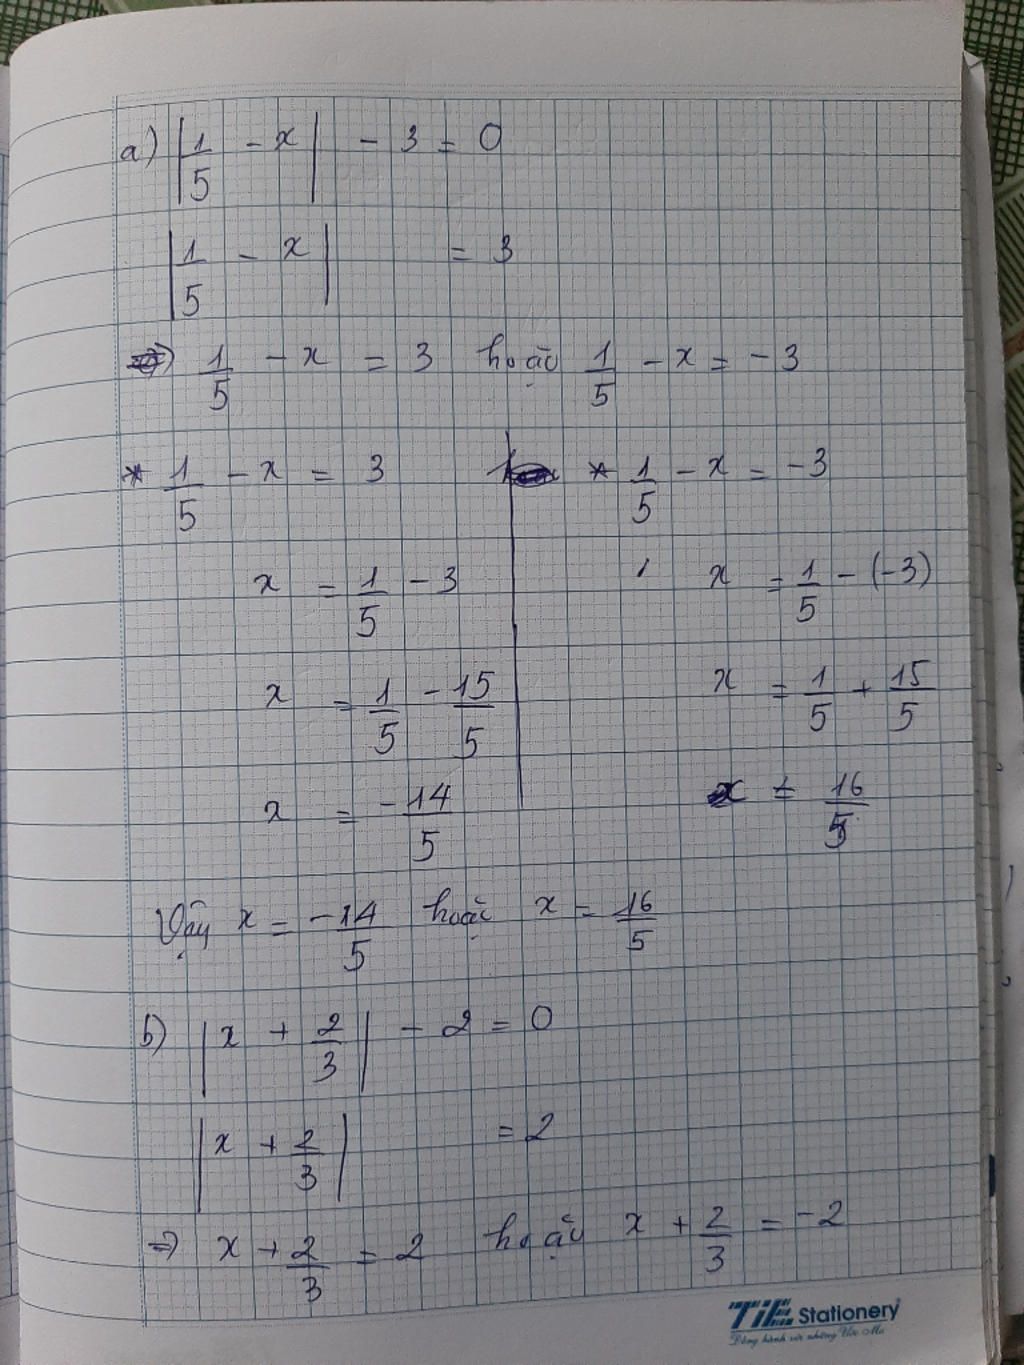 a) |1/5 - x| - 3 = 0
|1/5 - x| = 3
1/5 - x = 3 hoặc 1/5 - x = -3
* 1/5 - x = 3 * 1/5 - x = -3
x = 1/5 - 3 x = 1/5 - (-3)
x = 1/5 - 15/5 x = 1/5 + 15/5
x = -14/5 x = 16/5
Vậy x = -14/5 hoặc x = 16/5
b) |x + 2/3| - 2 = 0
|x + 2/3| = 2
=> x + 2/3 = 2 hoặc x + 2/3 = -2
TiE Stationery
Đồng hành với những Ước Mơ